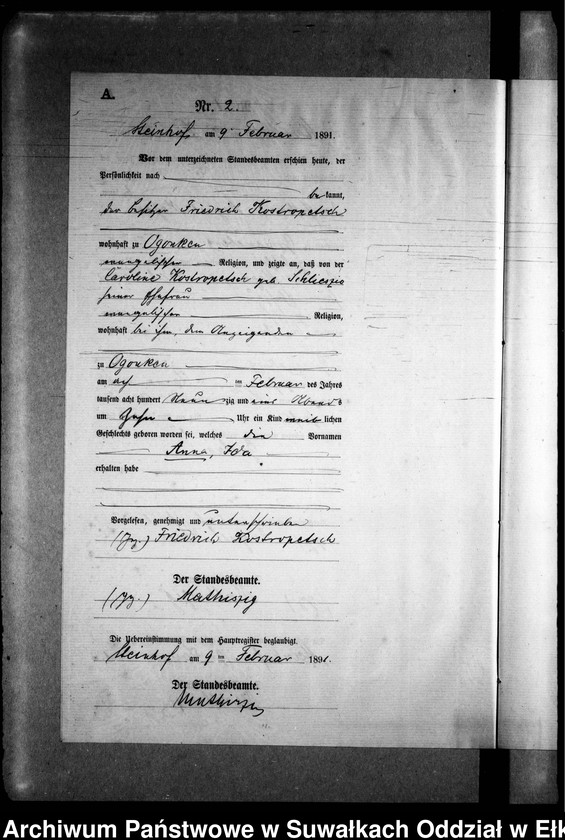 A.
Nr. 2.
Steinhof am 9ten Februar 1891.
Vor dem unterzeichneten Standesbeamten erschien heute, der
Persönlichkeit nach
bekannt,
der Besitzer Friedrich Kostropetsch
wohnhaft zu Ogonken
evangelischer Religion, und zeigte an, daß von der
Caroline Kostropetsch geb. Schlieszio
seiner Ehefrau
evangelischer Religion,
wohnhaft bei ihm, dem Anzeigenden
zu Ogonken
am ten Februar des Jahres
tausend acht hundert Neunzig und eins Abends
um Zehn Uhr ein Kind weiblichen
Geschlechts geboren worden sei, welches die Vornamen
Anna, Ida
erhalten habe
Vorgelesen, genehmigt und unterschrieben
(gez.) Friedrich Kostropetsch
Der Standesbeamte.
(gez.) Mathiszig
Die Uebereinstimmung mit dem Hauptregister beglaubigt.
Steinhof am 9ten Februar 1891.
Der Standesbeamte.
Mathiszig
Archiwum Państwowe w Suwałkach Oddział w Ełk